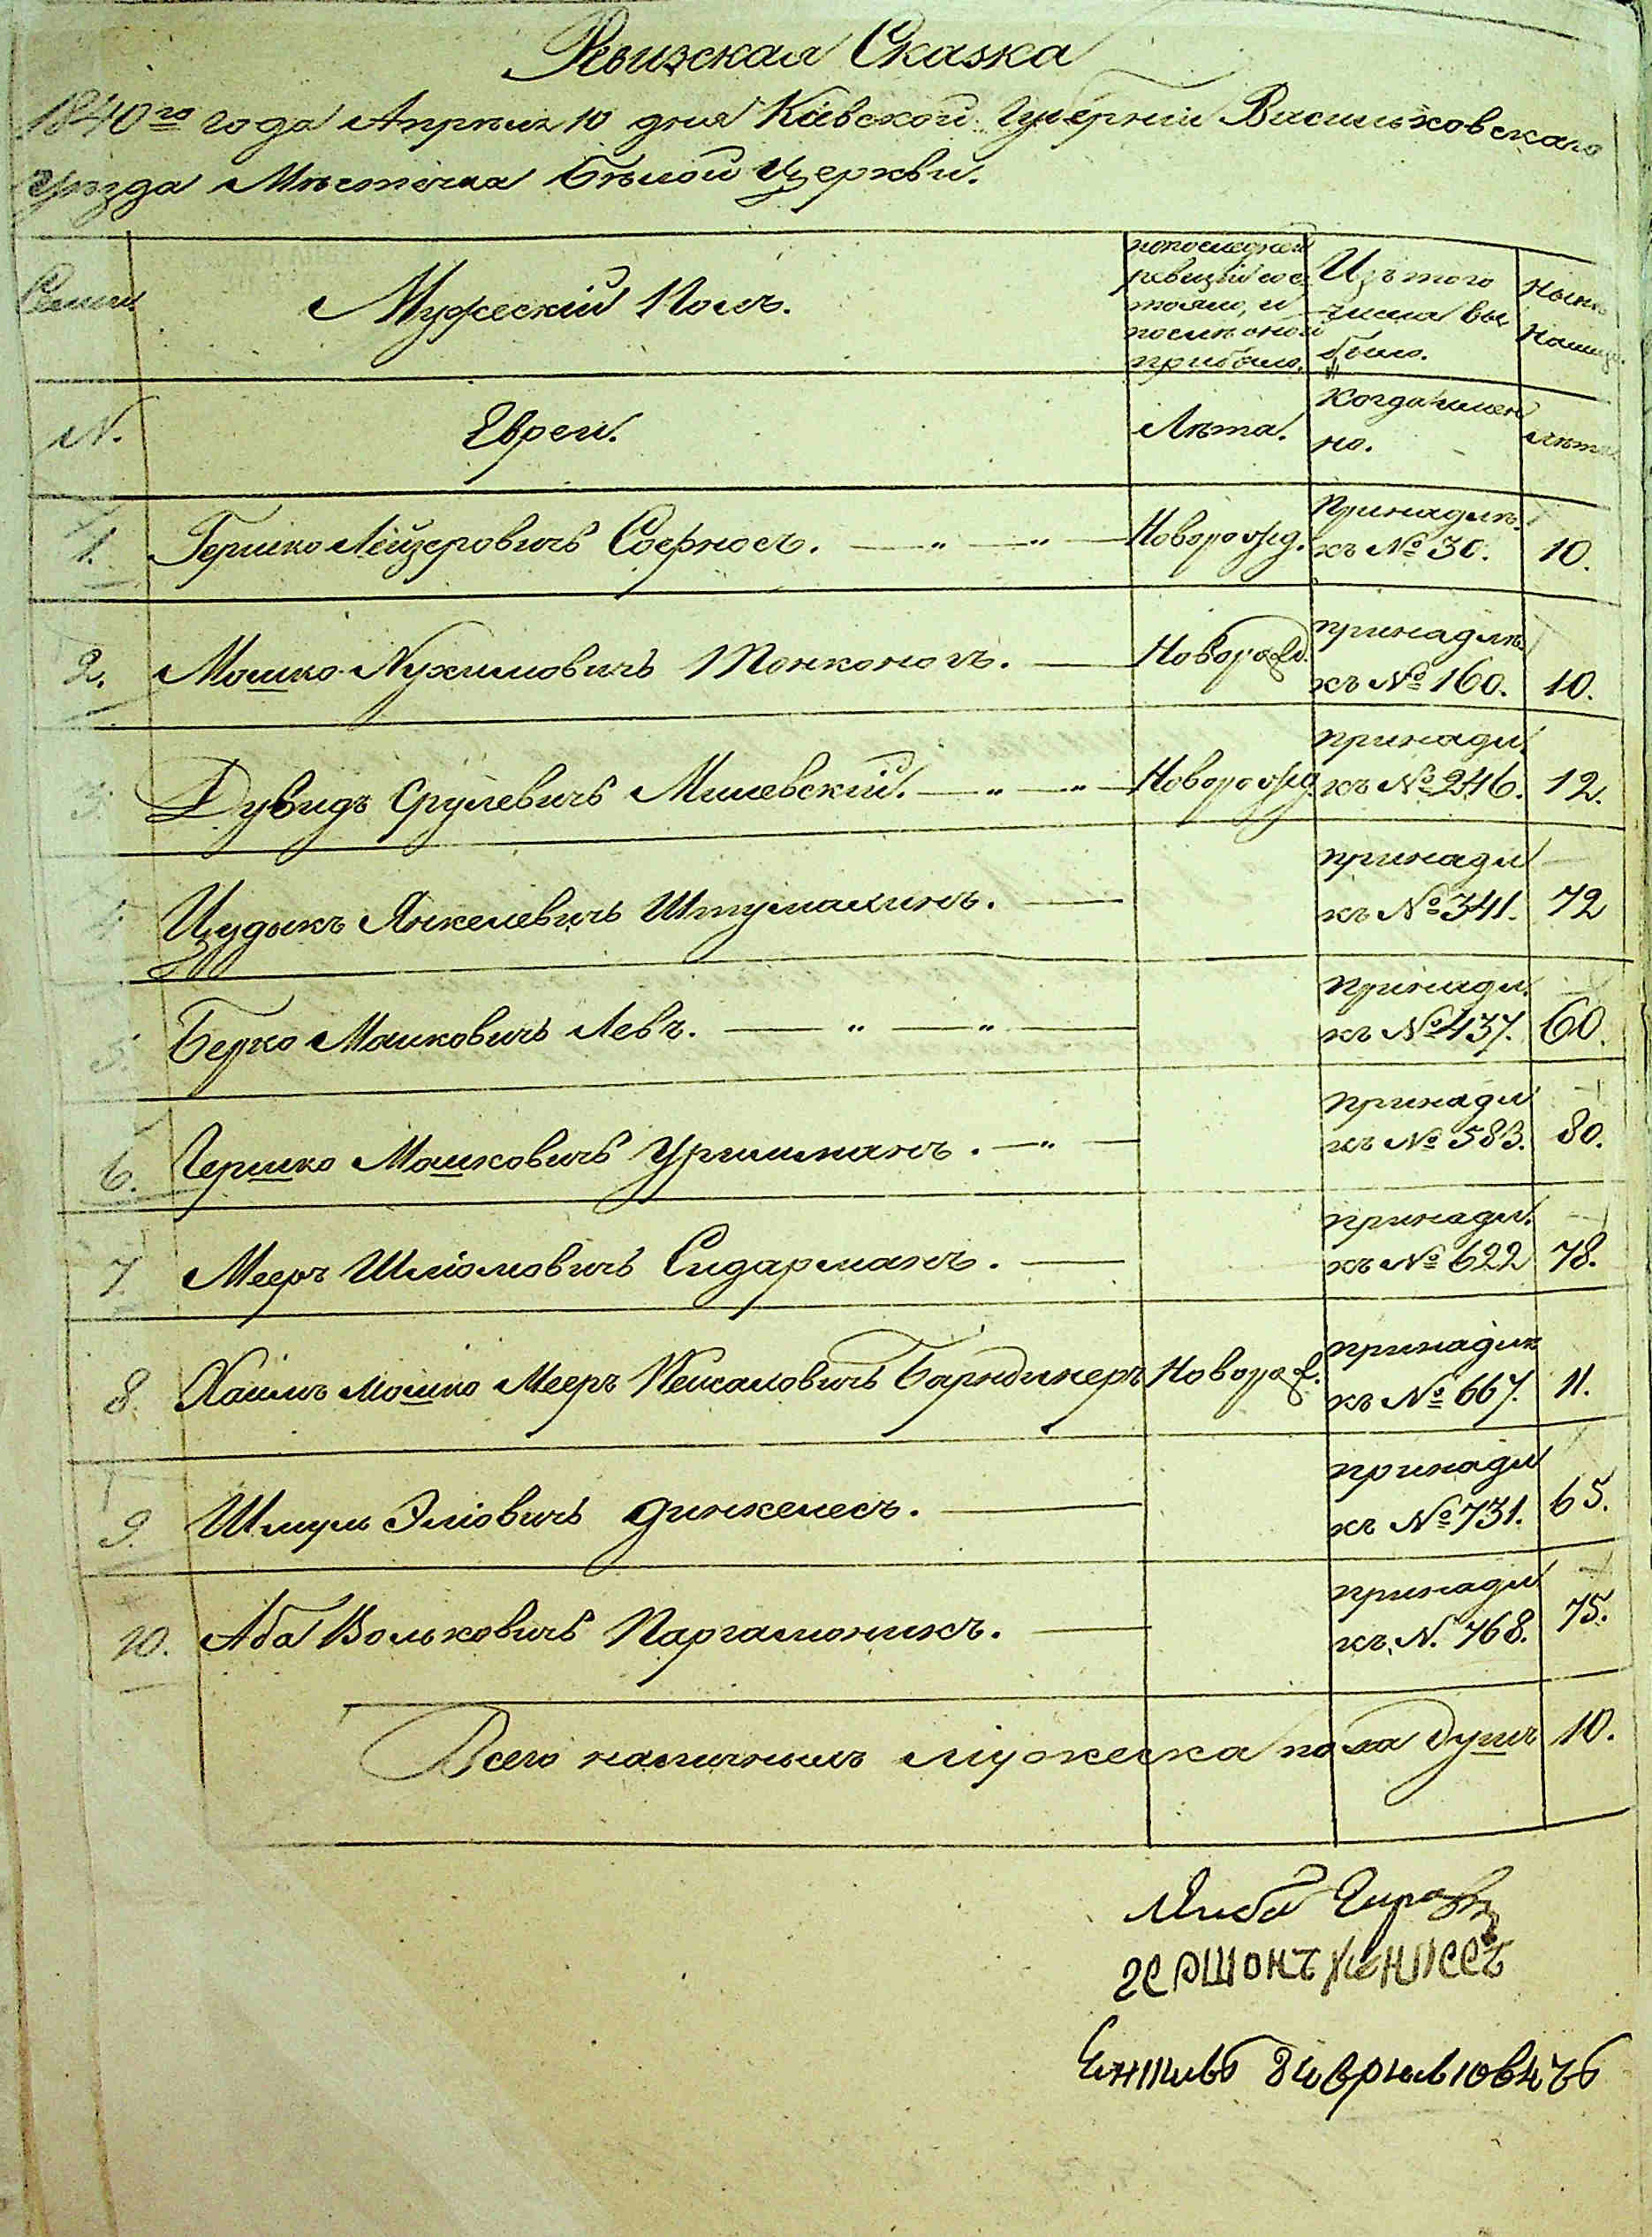 Ревизская Сказка
1840го года Апреля 10 дня Киевской Губернiи Васильковскаго
уезда Местечка Белой Церкви.
Семьи.
Мужескiй Полъ.
попоследней
ревизiи сос
тояло, и
после оной
прибыло.
Изъ того
числа вы
было.
Ныне
налицо.
N.
Евреи.
Лѣта.
когда имен
но.
лѣта
1. Гершко Лейзеровичъ Соферносъ. — " — " — Новорожд. принадлѣ. къ № 30. 10.
2. Мошко Нухимовичъ Тонконогъ. — Новорожд. принадлѣ къ № 160. 10.
3. Дувидъ Срулевичъ Милевскiй. — " — " — Новорожд. принадл. къ № 246. 12.
4. Цудыкъ Янкелевичъ — принадл къ № 341. 72
5. Берко Машковичъ Левъ. — " — " — принадл. къ № 437. 60.
6. Гершко Машковичъ Уришманъ. — " — принадл къ № 583. 80.
7. Мееръ Шлiомовичъ Сидарманъ. — принадл. къ № 622 78.
8. Хаимъ Мошко Мееръ Пейсаховичъ Барндинеръ Новорожд. принадлѣ къ № 667. 11.
9. Шмуль Элiовичъ Динкелесъ. — принадл къ № 731. 65.
10. Аба Вольковичъ Паргаменикъ. — принадл къ N. 768. 75.
Всего наличныхъ мужеска пола душъ 10.
гершонъ